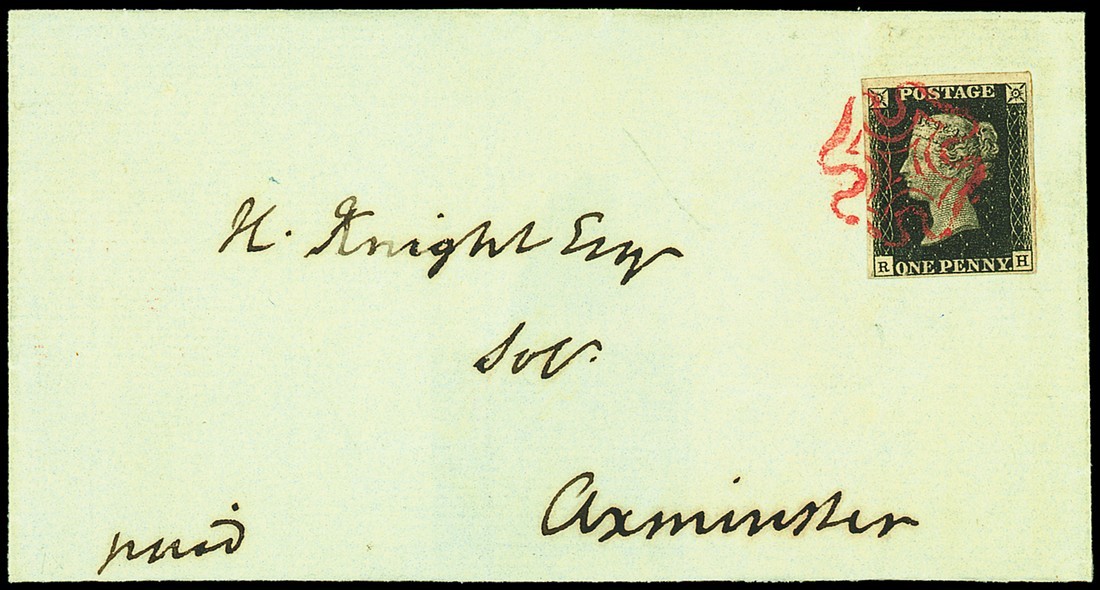 POSTAGE
R ONE PENNY. H
H. Knight Esq
Solr.
Axminster
paid